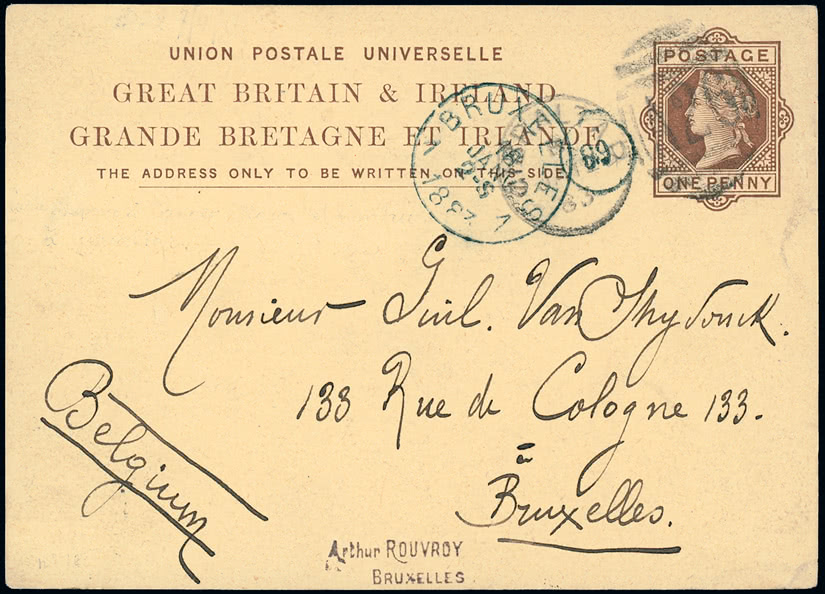 UNION POSTALE UNIVERSELLE
GREAT BRITAIN & IRELAND
GRANDE BRETAGNE ET IRLANDE
THE ADDRESS ONLY TO BE WRITTEN ON THIS SIDE
POSTAGE
ONE PENNY
BRUXELLES
69
Monsieur Guil. Van
133 Rue de Cologne 133.
à
Bruxelles.
Belgium
Arthur ROUVROY
BRUXELLES